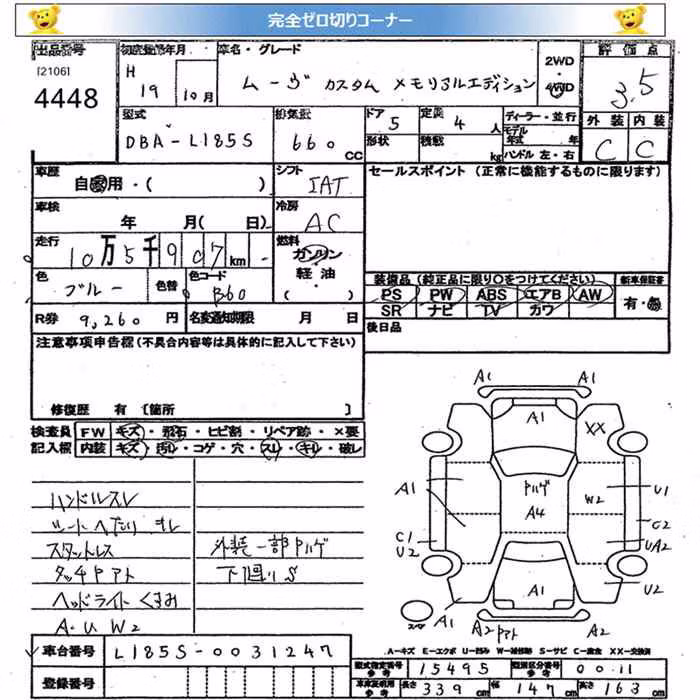 完全ゼロ切りコーナー
出品番号
[2106]
4448
初度登録年月
H 19 10月
車名・グレード
ムーヴ カスタム メモリアルエディション
2WD
4WD
評価点
3.5
外装 内装
C C
型式
DBA-L185S
排気量
660 CC
ドア 5
形状
定員 4 人
積載 kg
ディーラー・並行
モデル年式 年
ハンドル 左・右
車歴
自家用・( )
シフト
IAT
セールスポイント (正常に機能するものに限ります)
車検
年 月( 日)
冷房
AC
走行
10万5千907km
燃料
ガソリン
軽・油
( )
色
ブルー
色替
色コード
B60
装備品(純正品に限り○をつけてください)
新車保証書
PS PW ABS エアB AW
SR ナビ TV カワ
有・無
R券 9,260 円
名変通知期限 月 日
後日品
注意事項申告欄(不具合内容等は具体的に記入して下さい)
修復歴 有〔箇所 〕
検査員
記入欄
FW キズ・飛石・ヒビ割・リペア跡・×要
内装 キズ・汚れ・コゲ・穴・スレ・キレ・破レ
ハンドルスレ
シートヘたり キレ
スタットレス
タッチPアト
ヘッドライトくすみ
A・U W2
外装一部Pハゲ
下廻りS
A1 A1
A1
XX
Pハゲ
A4
W2
A1
U1
C1
U2
C2
UA2
A1
A1
U2
スペア
A2
Pアト
A2
A-キズ E-エクボ U-凹み W-補修跡 S-サビ C-腐食 XX-交換済
車台番号 L185S-0031247
登録番号
型式指定番号
参考
15495
類別区分番号
参考
0011
車庫証明用
参考
長さ 339 cm
幅 147 cm
高さ 163 cm